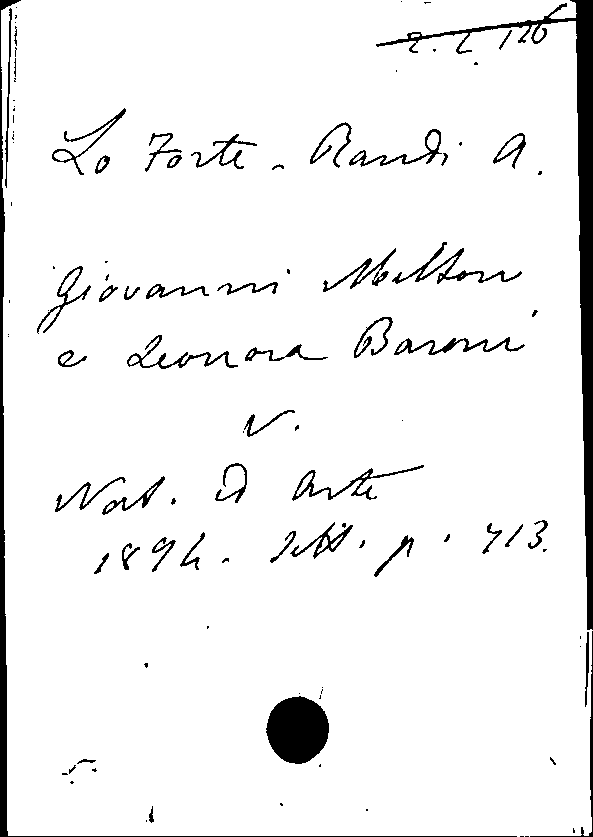 2. L. 126
Lo Forte - Randi A.
Giovanni Milton
e Leonora Baroni
V.
Nat. ed Arte
1894. Sett. p. 713.